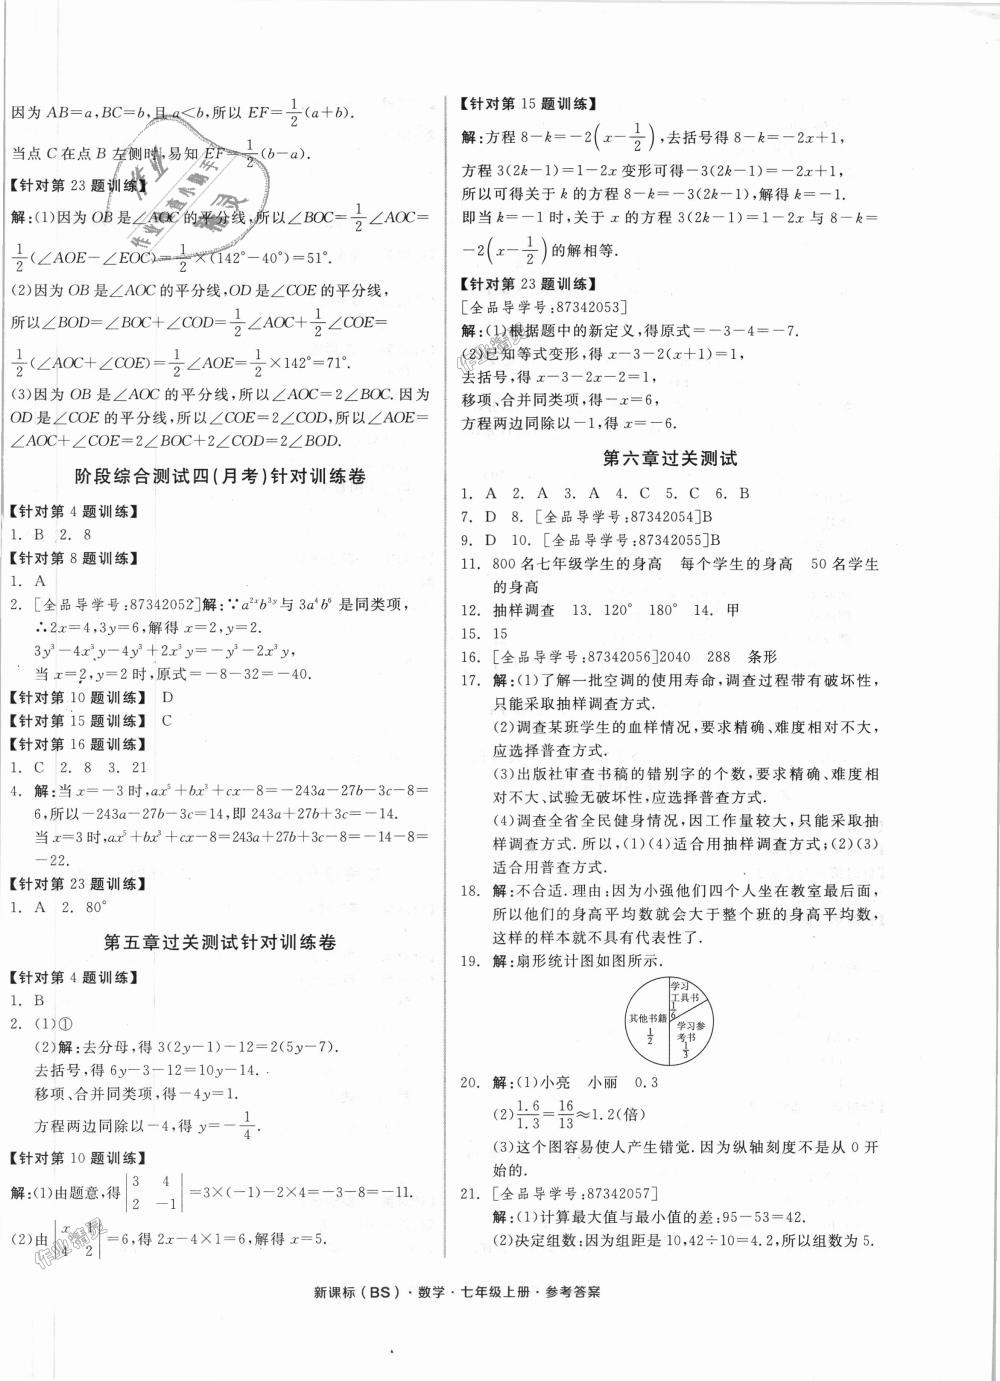 因为 AB=a,BC=b,且 a<b,所以 EF=1/2(a+b).
当点 C 在点 B 左侧时,易知 EF=1/2(b-a).
【针对第 23 题训练】
解:(1)因为 OB 是∠AOC 的平分线,所以∠BOC=1/2∠AOC=
1/2(∠AOE-∠EOC)=1/2×(142°-40°)=51°.
(2)因为 OB 是∠AOC 的平分线,OD 是∠COE 的平分线,
所以∠BOD=∠BOC+∠COD=1/2∠AOC+1/2∠COE=
1/2(∠AOC+∠COE)=1/2∠AOE=1/2×142°=71°.
(3)因为 OB 是∠AOC 的平分线,所以∠AOC=2∠BOC. 因为
OD 是∠COE 的平分线,所以∠COE=2∠COD,所以∠AOE=
∠AOC+∠COE=2∠BOC+2∠COD=2∠BOD.
阶段综合测试四(月考)针对训练卷
【针对第 4 题训练】
1. B 2. 8
【针对第 8 题训练】
1. A
2. [全品导学号:87342052]解:∵a²ˣb³ʸ与 3a⁴b⁶ 是同类项,
∴2x=4,3y=6,解得 x=2,y=2.
3y³-4x³y-4y³+2x³y=-y³-2x³y,
当 x=2,y=2 时,原式=-8-32=-40.
【针对第 10 题训练】 D
【针对第 15 题训练】 C
【针对第 16 题训练】
1. C 2. 8 3. 21
4. 解:当 x=-3 时,ax⁵+bx³+cx-8=-243a-27b-3c-8=
6,所以-243a-27b-3c=14,即 243a+27b+3c=-14.
当 x=3 时,ax⁵+bx³+cx-8=243a+27b+3c-8=-14-8=
-22.
【针对第 23 题训练】
1. A 2. 80°
第五章过关测试针对训练卷
【针对第 4 题训练】
1. B
2. (1)①
(2)解:去分母,得 3(2y-1)-12=2(5y-7).
去括号,得 6y-3-12=10y-14.
移项、合并同类项,得-4y=1.
方程两边同除以-4,得 y=-1/4.
【针对第 10 题训练】
解:(1)由题意,得|3 4; 2 -1|=3×(-1)-2×4=-3-8=-11.
(2)由|x 1; 4 2|=6,得 2x-4×1=6,解得 x=5.
【针对第 15 题训练】
解:方程 8-k=-2(x-1/2),去括号得 8-k=-2x+1,
方程 3(2k-1)=1-2x 变形可得-3(2k-1)=-2x+1,
所以可得关于 k 的方程 8-k=-3(2k-1),解得 k=-1.
即当 k=-1 时,关于 x 的方程 3(2k-1)=1-2x 与 8-k=
-2(x-1/2)的解相等.
【针对第 23 题训练】
[全品导学号:87342053]
解:(1)根据题中的新定义,得原式=-3-4=-7.
(2)已知等式变形,得 x-3-2(x+1)=1,
去括号,得 x-3-2x-2=1,
移项、合并同类项,得-x=6,
方程两边同除以-1,得 x=-6.
第六章过关测试
1. A 2. A 3. A 4. C 5. C 6. B
7. D 8. [全品导学号:87342054]B
9. D 10. [全品导学号:87342055]B
11. 800 名七年级学生的身高 每个学生的身高 50 名学生
的身高
12. 抽样调查 13. 120° 180° 14. 甲
15. 15
16. [全品导学号:87342056]2040 288 条形
17. 解:(1)了解一批空调的使用寿命,调查过程带有破坏性,
只能采取抽样调查方式.
(2)调查某班学生的血样情况,要求精确、难度相对不大,
应选择普查方式.
(3)出版社审查书稿的错别字的个数,要求精确、难度相
对不大、试验无破坏性,应选择普查方式.
(4)调查全省全民健身情况,因工作量较大,只能采取抽
样调查方式. 所以,(1)(4)适合用抽样调查方式;(2)(3)
适合用普查方式.
18. 解:不合适. 理由:因为小强他们四个人坐在教室最后面,
所以他们的身高平均数就会大于整个班的身高平均数,
这样的样本就不具有代表性了.
19. 解:扇形统计图如图所示.
学习
工具书
1/6
其他书籍
1/2
学习参
考书
1/3
20. 解:(1)小亮 小丽 0.3
(2)1.6/1.3=16/13≈1.2(倍)
(3)这个图容易使人产生错觉. 因为纵轴刻度不是从 0 开
始的.
21. [全品导学号:87342057]
解:(1)计算最大值与最小值的差:95-53=42.
(2)决定组数:因为组距是 10,42÷10=4.2,所以组数为 5.
新课标(BS)·数学·七年级上册·参考答案
作业精灵
作业精灵